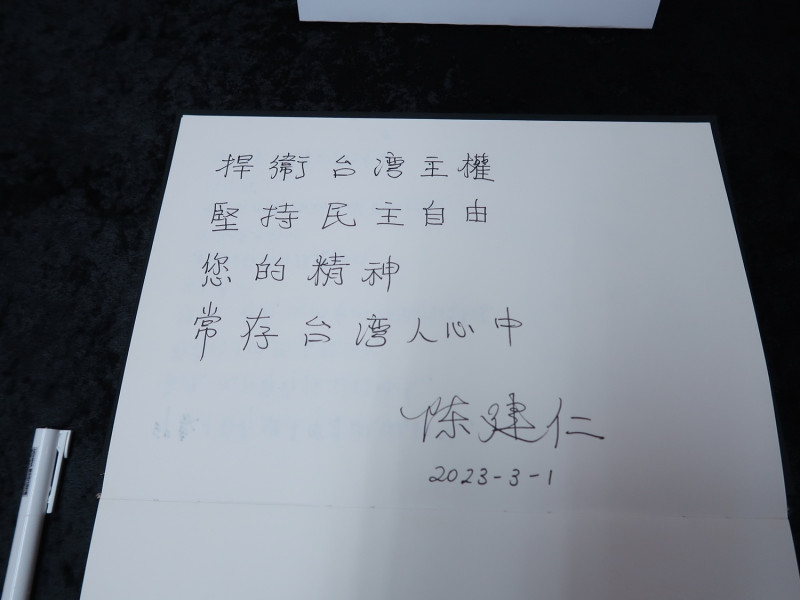 捍衛台湾主權
堅持民主自由
您的精神
常存台湾人心中
陈建仁
2023-3-1